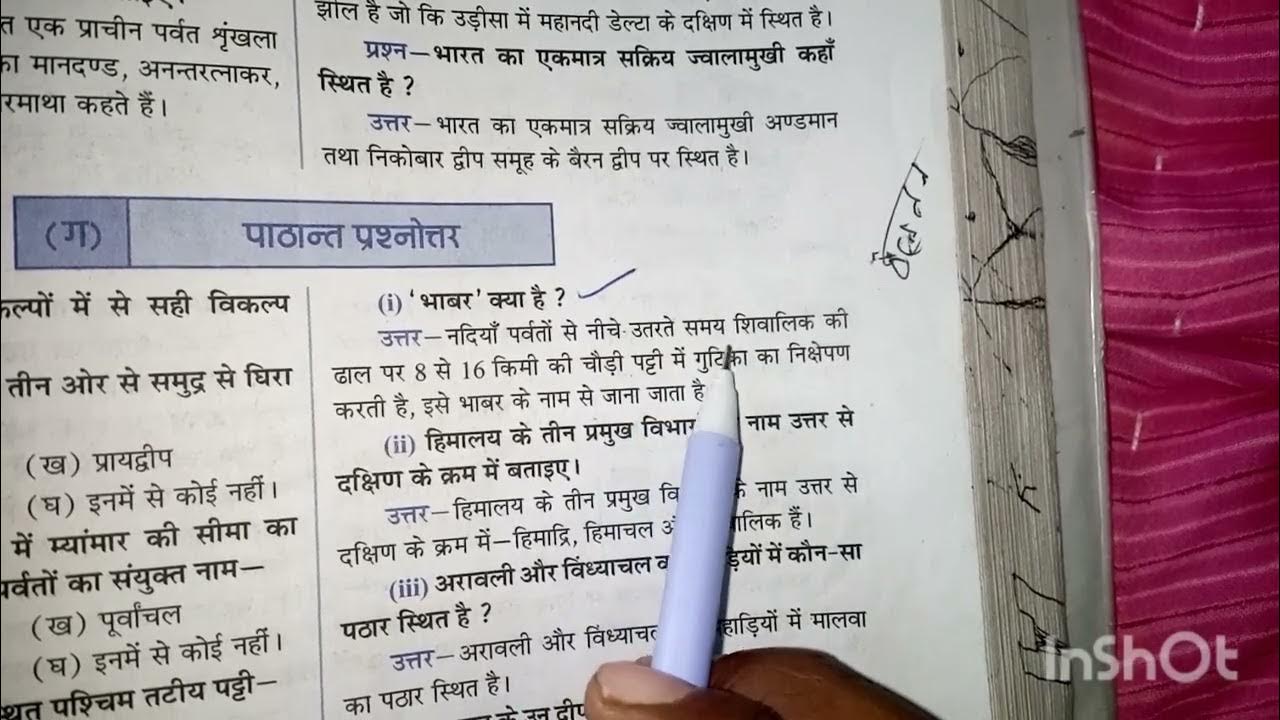 त एक प्राचीन पर्वत शृंखला
का मानदण्ड, अनन्तरत्नाकर,
रमाथा कहते हैं।
झील है जो कि उड़ीसा में महानदी डेल्टा के दक्षिण में स्थित है।
प्रश्न–भारत का एकमात्र सक्रिय ज्वालामुखी कहाँ
स्थित है ?
उत्तर–भारत का एकमात्र सक्रिय ज्वालामुखी अण्डमान
तथा निकोबार द्वीप समूह के बैरन द्वीप पर स्थित है।
(ग) पाठान्त प्रश्नोत्तर
कल्पों में से सही विकल्प
तीन ओर से समुद्र से घिरा
(ख) प्रायद्वीप
(घ) इनमें से कोई नहीं।
में म्यांमार की सीमा का
पर्वतों का संयुक्त नाम–
(ख) पूर्वांचल
(घ) इनमें से कोई नहीं।
थत पश्चिम तटीय पट्टी–
(i) ‘भाबर’ क्या है ?
उत्तर–नदियाँ पर्वतों से नीचे उतरते समय शिवालिक की
ढाल पर 8 से 16 किमी की चौड़ी पट्टी में गुटिका का निक्षेपण
करती है, इसे भाबर के नाम से जाना जाता है
(ii) हिमालय के तीन प्रमुख विभा नाम उत्तर से
दक्षिण के क्रम में बताइए।
उत्तर–हिमालय के तीन प्रमुख वि के नाम उत्तर से
दक्षिण के क्रम में–हिमाद्रि, हिमाचल लिक हैं।
(iii) अरावली और विंध्याचल ड़ियों में कौन-सा
पठार स्थित है ?
उत्तर–अरावली और विंध्याचल हाड़ियों में मालवा
का पठार स्थित है।
के उन द्वीप
InShOt